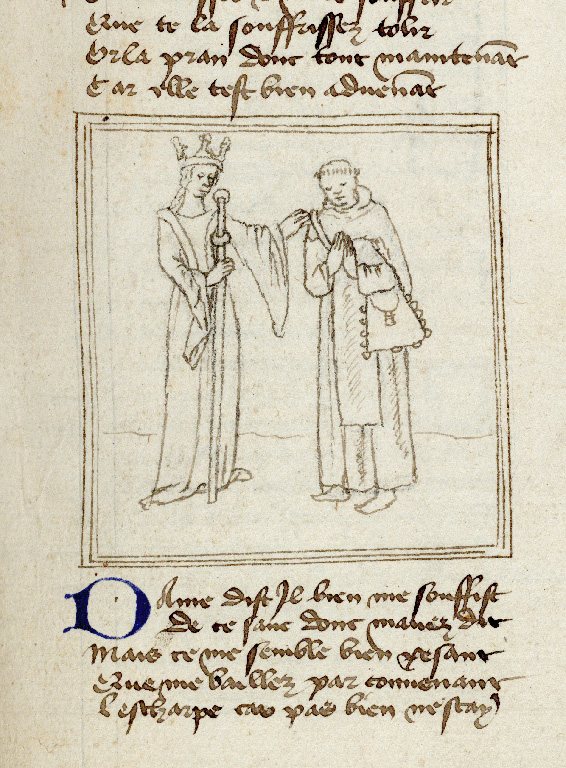 Que te la souffrissez tolir
Orla pran donc tout maintenāt
Car elle test bien aduenāt
Dame dist Jl bien me souffist
de ce sauc donc mauez dit
Mais ce me semble bien pesant
Que me baillez par conuenant
Lescharpe car pas bien ne scay